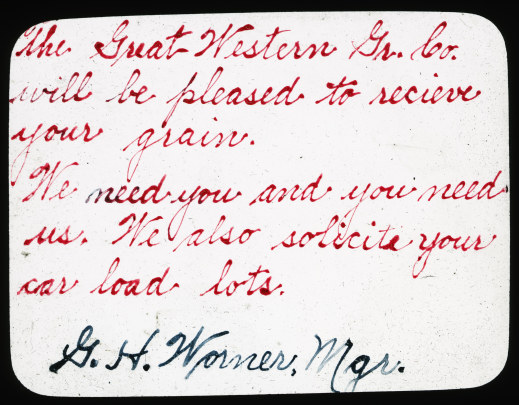 The Great Western Gr. Co.
will be pleased to recieve
your grain.
We need you and you need
us. We also solicite your
car load lots.
G. H. Worner, Mgr.